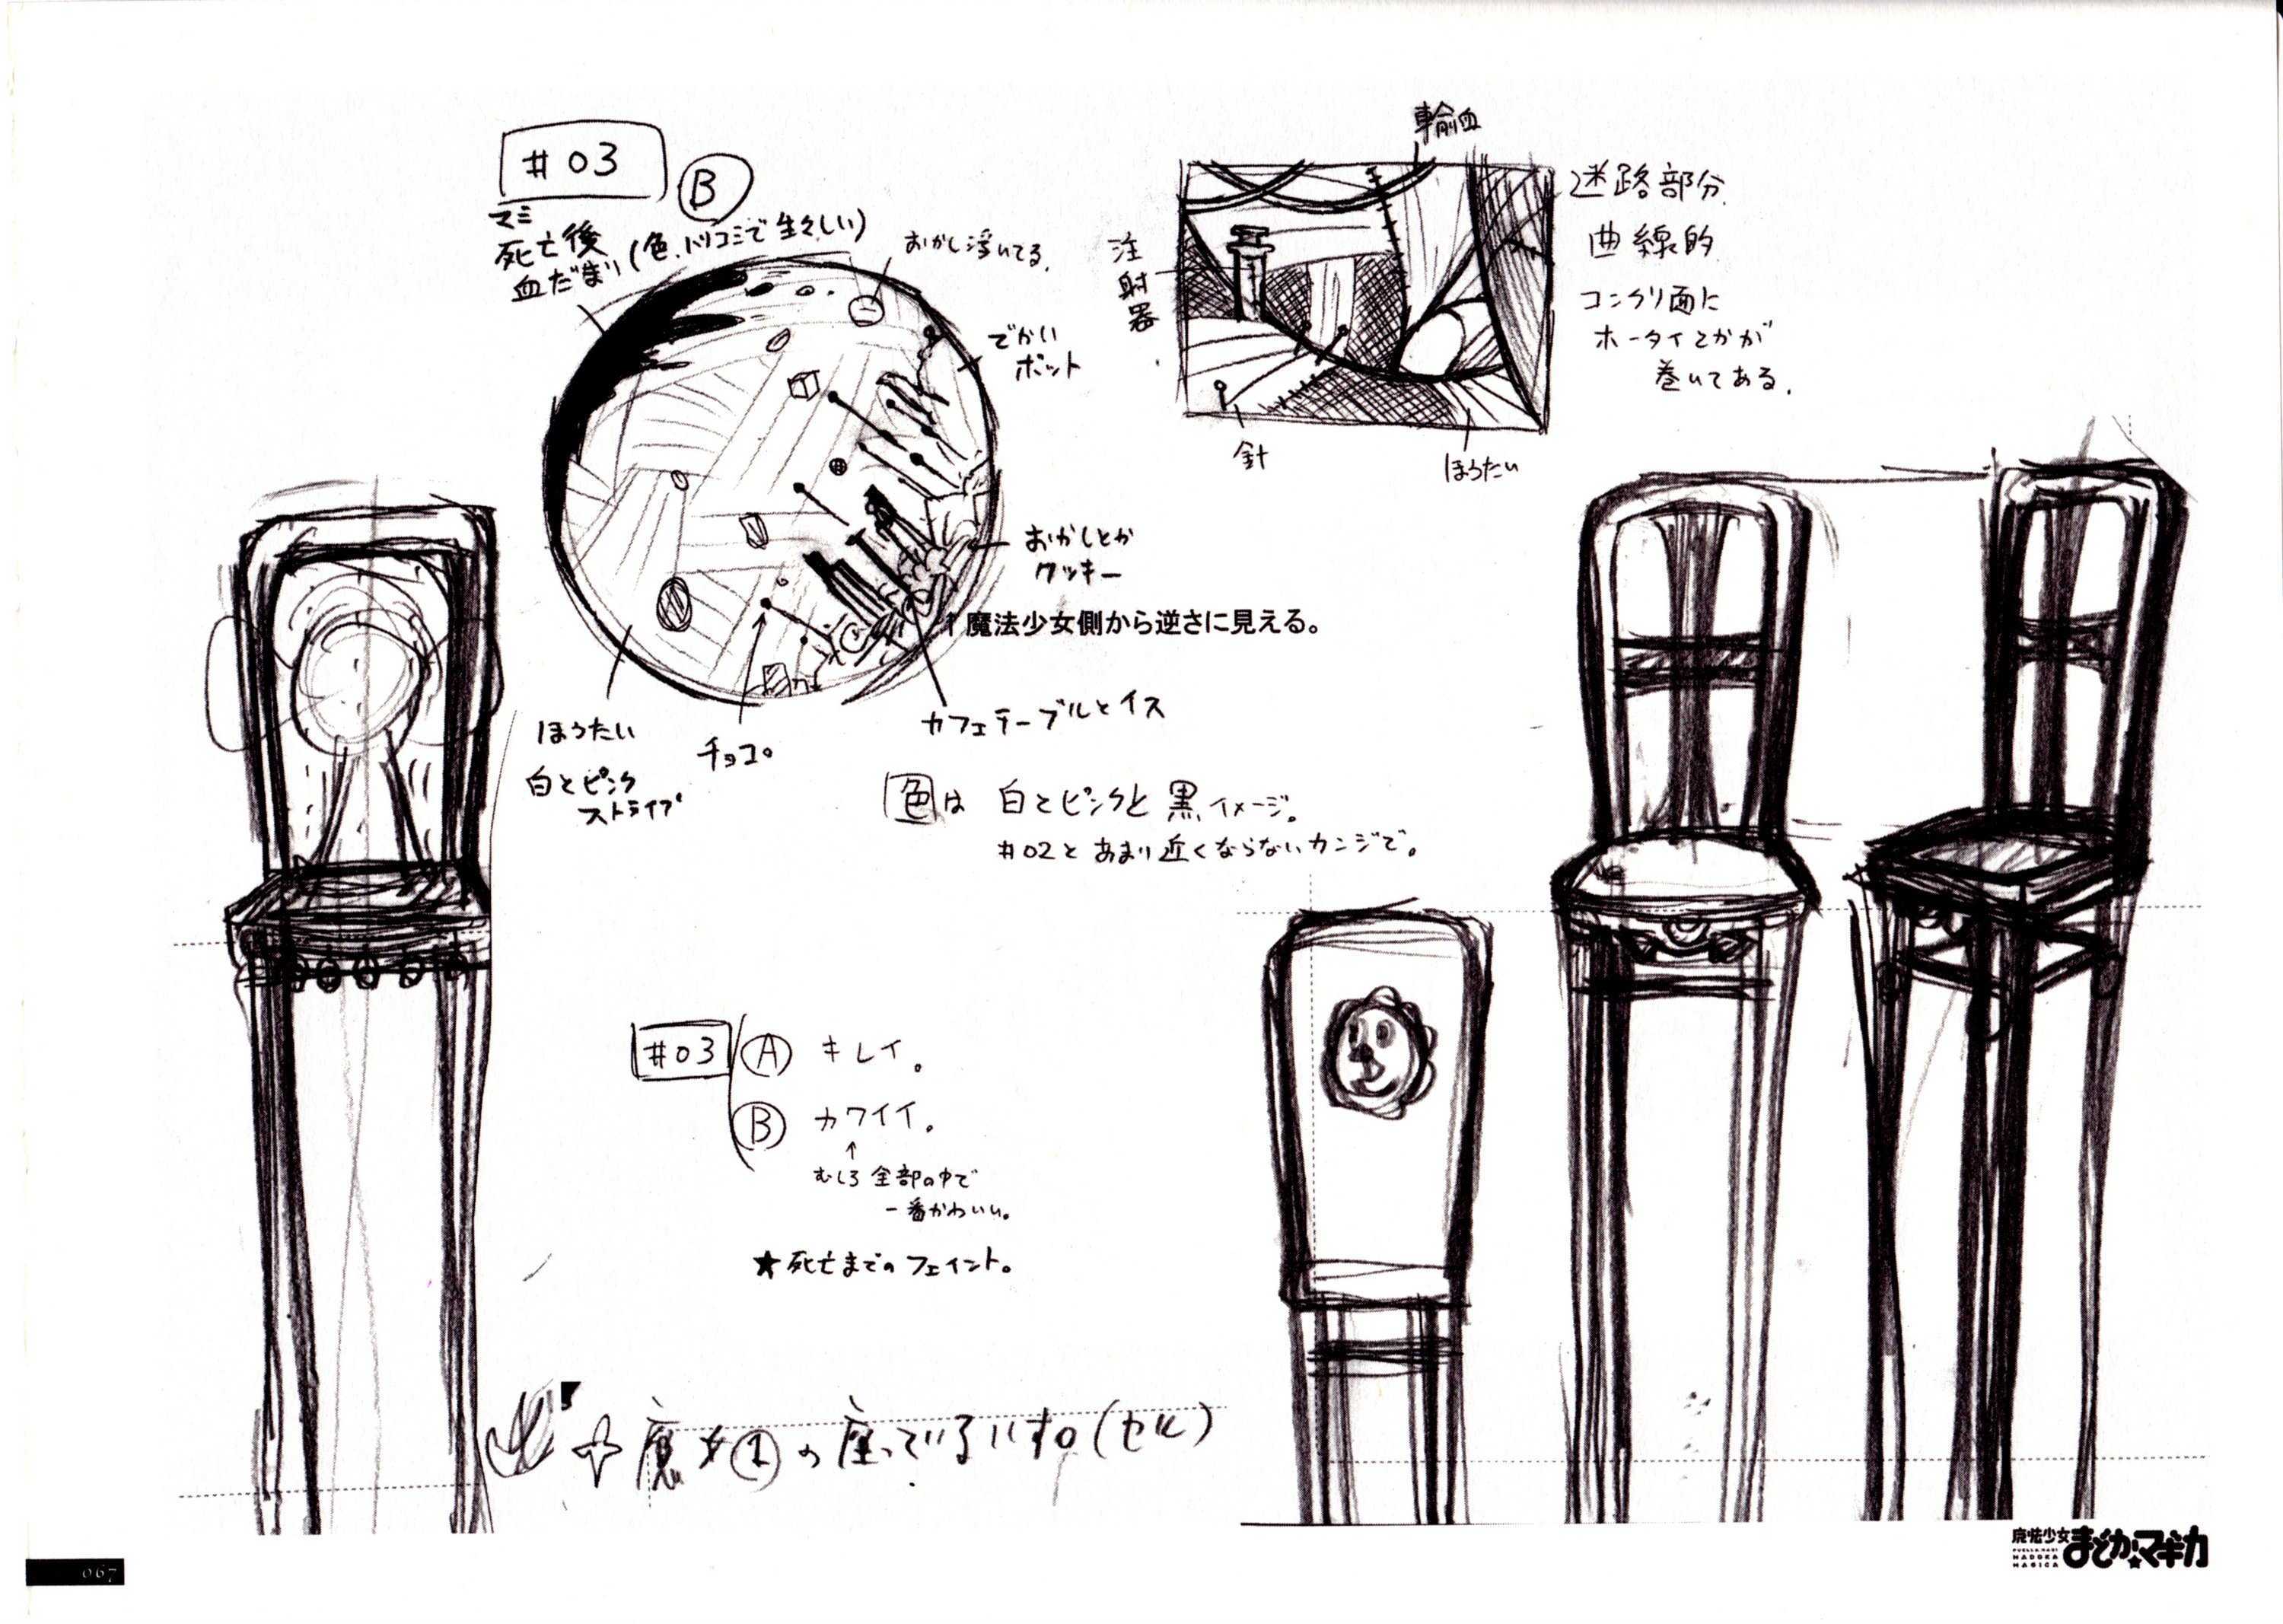 #03
B
マミ
死亡後
血だまり(色、バリコミで生々しい)
おかし浮いてる。
でかい
ポット
おかしとか
クッキー
↑魔法少女側から逆さに見える。
カフェテーブルとイス
チョコ。
ほうたい
白とピンク
ストライプ
輸血
注射器
針
ほうたい
迷路部分
曲線的
コンクリ面に
ホータイとかが
巻いてある。
色は 白とピンクと黒イメージ。
#02とあまり近くならないカンジで。
#03 A キレイ。
B カワイイ。
↑
むしろ全部の中で
一番かわいい。
★死亡までのフェイント。
魔女①の座っているいす。(セル)
067
魔法少女
まどか★マギカ
PUELLA MAGI
MADOKA
MAGICA